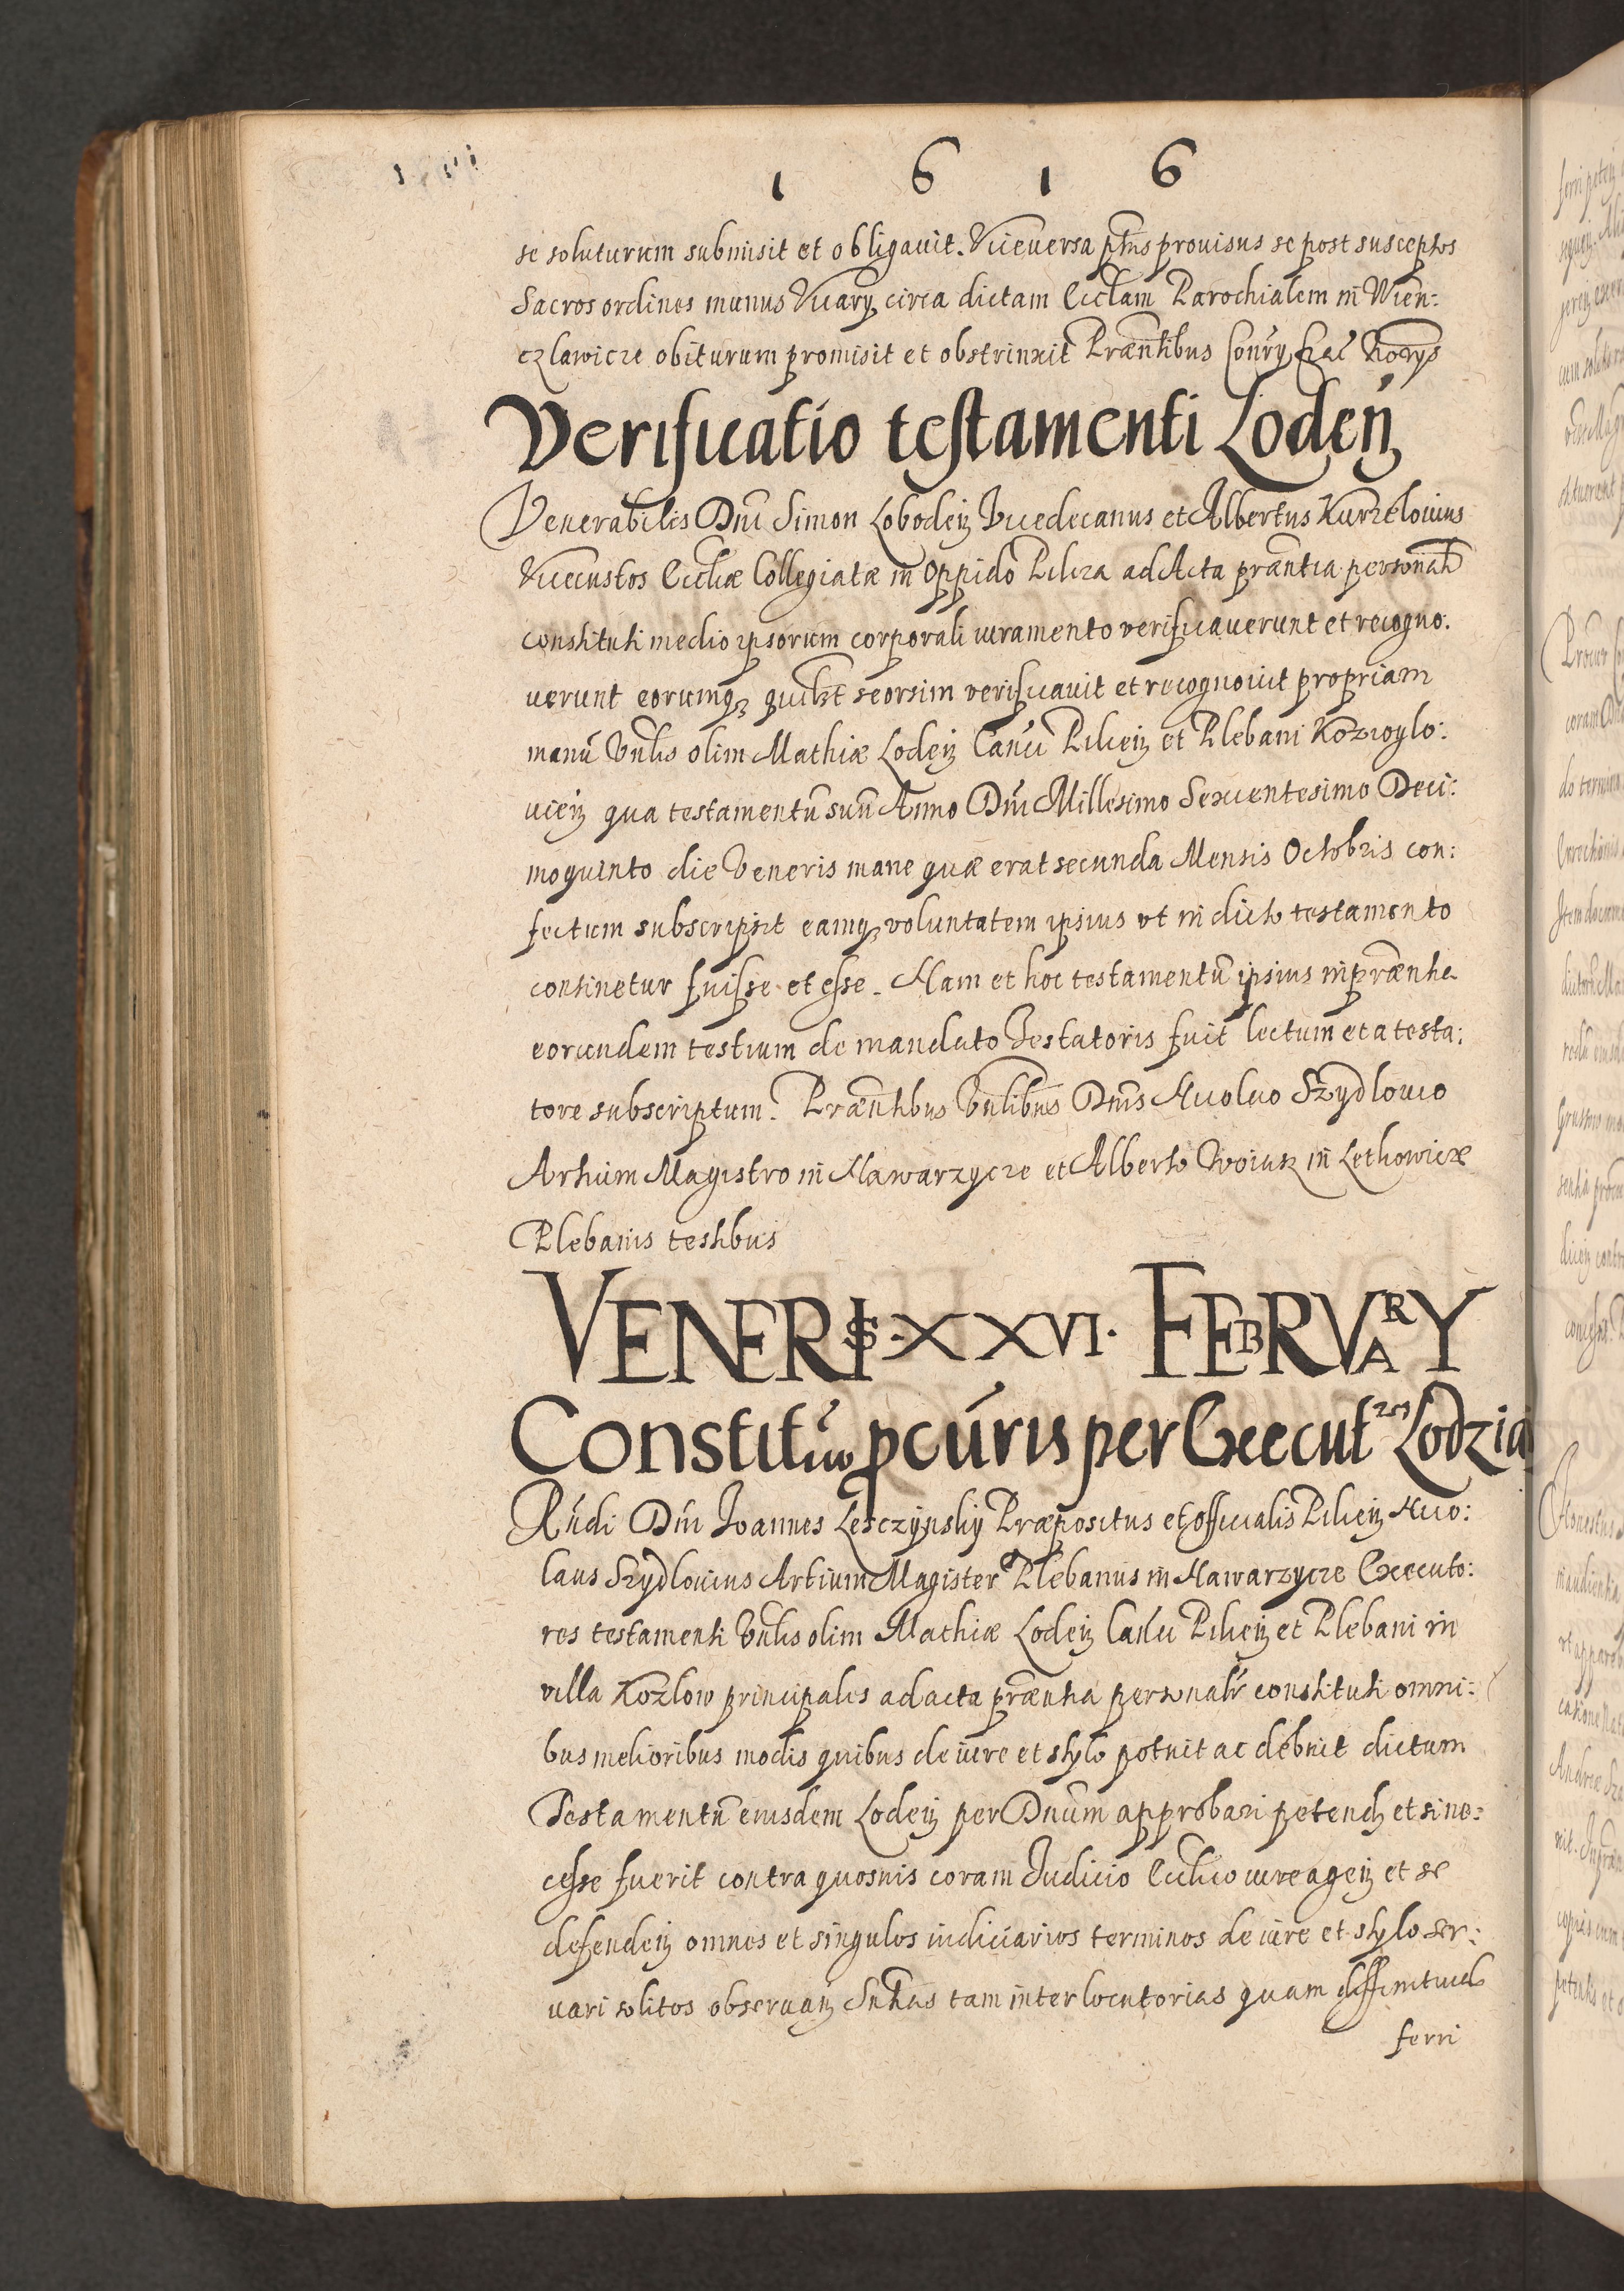 1 6 1 6
se soluturum submisit et obligauit. Viceuersa ptus prouisus se post susceptos
Sacros ordines munus Vicarÿ circa dictam Eccłam Parochialem in Wien:
czlawicze obiturum promisit et obstrinxit Præntibus
Verificatio testamenti Loden̄
Venerabiles Dnī Simon Loboden̄ Vicedecanus et Albertus Kurzelouius
Vicecustos Eccliæ Collegiatæ in oppido Pilcza ad Acta præntia personalr
constituti medio ipsorum corporali iuramento verificauerunt et recogno:
uerunt eorumq; quilibet seorsim verificauit et recognouit propriam
manū Vnlis olim Mathiæ Loden̄ Canci Pilcien̄ et Plebani Kozioylo:
uien̄ qua testamentū suū Anno Dnī Millesimo Sexcentesimo Deci:
moquinto die Veneris mane quæ erat secunda Mensis Octobris con:
fectum subscripsit eamq; voluntatem ipsius vt in dicto testamento
continetur fuisse et esse. Nam et hoc testamentū ipsius in præntia
eorundem testium de mandato Testatoris fuit lectum et a testa:
tore subscriptum. Præntibus Vnlibus Dnis Nicolao Szydlouio
Artium Magistro in Nawarzycze et Alberto in Lethowicze
Plebanis testibus
VENERIS · XXVI · FEBRVARY
Constitutio pcuris per Executrm Lodzia
Rndi Dnī Ioannes Lesczynskÿ Præpositus et officialis Pilcien̄ Nico:
laus Szydlouius Artium Magister Plebanus in Nawarzycze Executo:
res testamenti Vnlis olim Mathiæ Loden̄ Canci Pilcien̄ et Plebani in
villa Kozlow principales ad acta præntia personalr constituti omni:
bus melioribus modis quibus de iure et stylo potuit ac debuit dictum
Testamentū eiusdem Loden̄ per Dnum approbari petend et si ne:
cesse fuerit contra quosuis coram Iudicio Ecclico iure agen̄ et se
defenden̄ omnes et singulos iudiciarios terminos de iure et stylo ser:
uari solitos obseruan̄ Sntias tam interlocutorias quam diffinitiuas
ferri